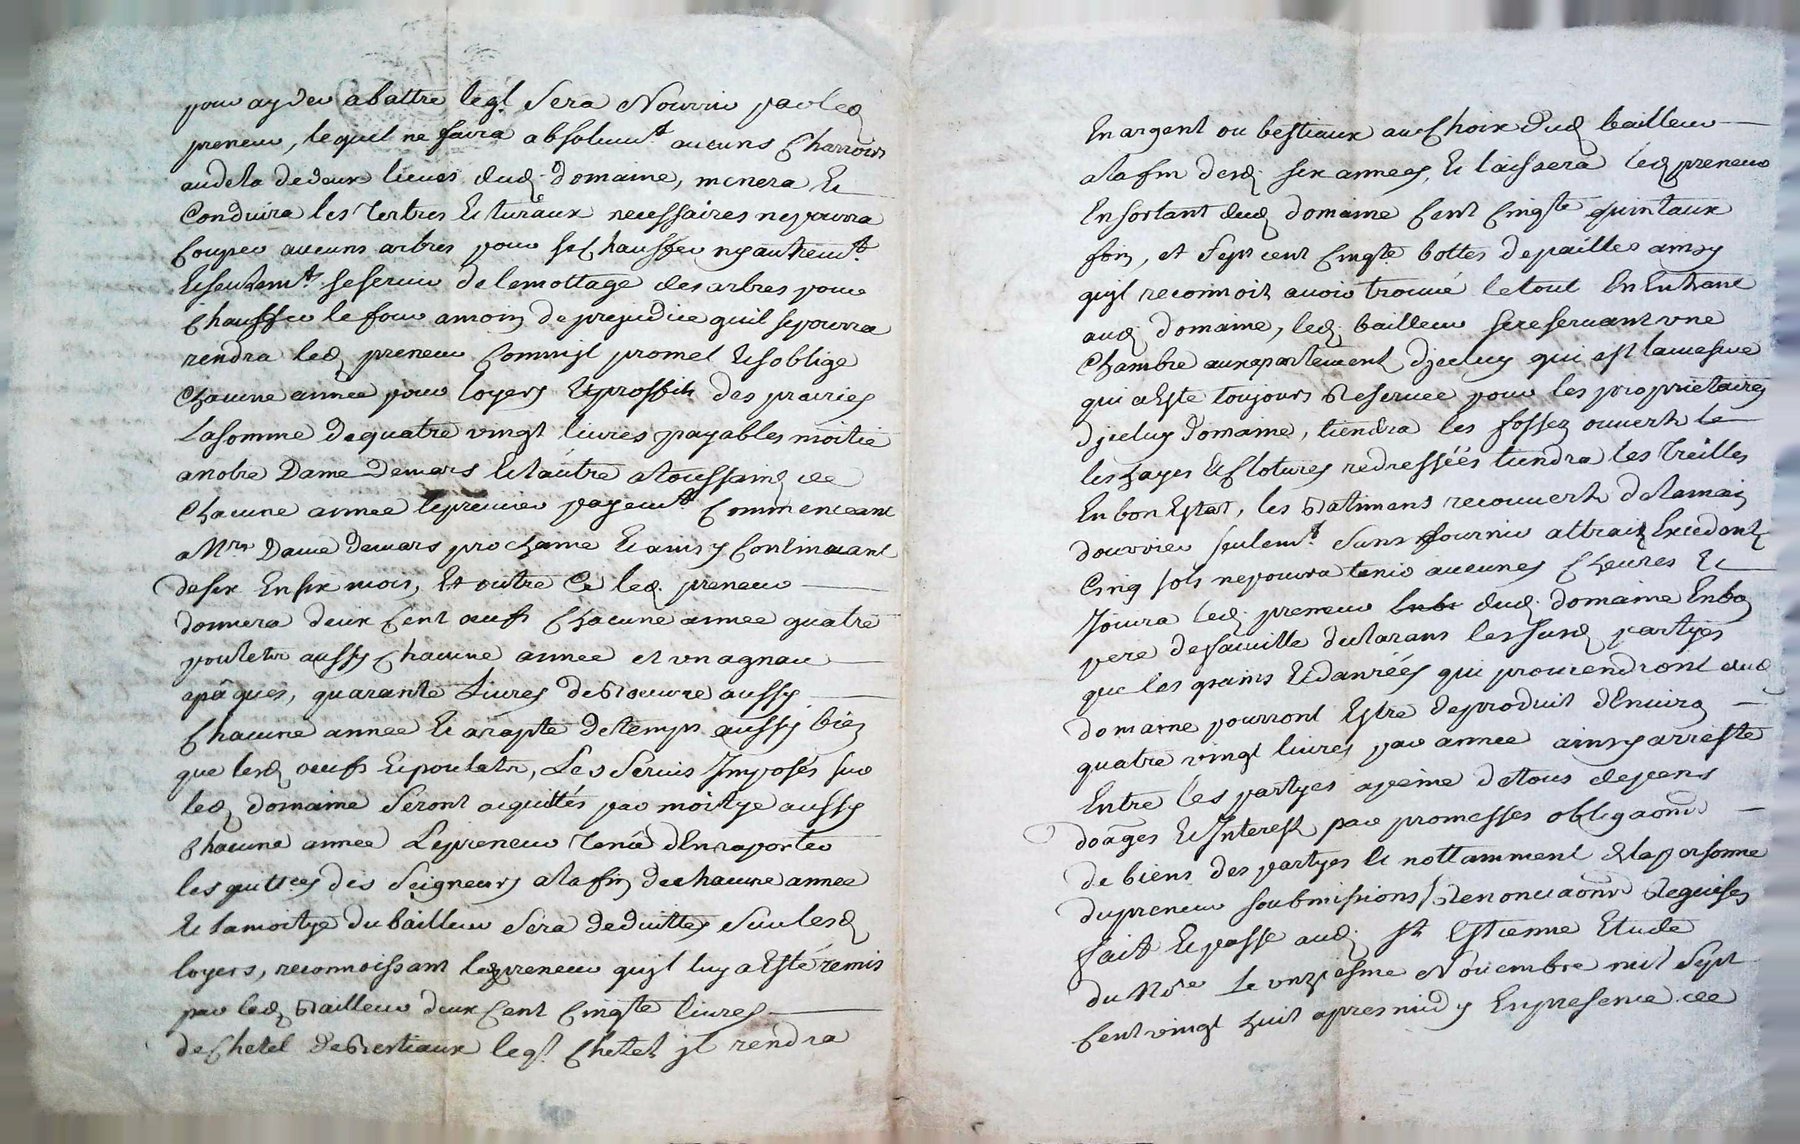 pour ayder abattre leql. sera Nourrir par led.
preneur, lequel ne faira absolumt. aucuns charrois
audela dedeux lieues dud. domaine, menera Et
Conduira les Tertres Et turaux necessaires nepourra
Couper aucuns arbres pour sechauffer nyautremt.
Etseulemt. seservir delemottage des arbres pour
chauffer le four amoin de prejudice quil sepourra
rendra led. preneur Comm jl promet Etsoblige
Chacune année pour loyers Et proffits des prairies
Lasomme dequatre vingt livres payables moitié
anotre Dame demars Et lautre atoussaint de
Chacune année lepremier payemt. Commenceant
a Nre Dame demars prochaine Et ainsy Continuant
desix En six mois, Et outre Ce led. preneur
donnera deux Cent œufs Chacune année quatre
pouletz aussy Chacune année et un agneau
apâques, quarante Livres de Beurre aussy
Chacune année Et arapte detemps aussy bien
que lesd. œufs Et pouletz, Les Servis Imposés sur
led. domaine seront acquittés par moitye aussy
Chacune année Lepreneur Tenû d'En raporter
les quittces des Seigneurs alafin de chacune année
Et lamoitye du bailleur sera deduitte sur lesd.
loyers, reconnoissant led preneur qujl luy a Esté remis
par led. Bailleur deux Cent Cinqte livres
de Chetel de Bestiaux leql. Chetel jl rendra
En argent ou bestiaux au Choix dud. bailleur
alafin desd. six années, Et laissera led. preneur
En sortant dud. domaine Cent Cinqte quintaux
foin, et sept cent Cinqte bottes depailles ainsy
qujl reconnoit avoir trouvé le tout En Entrant
aud. domaine, led. bailleur sereservant une
Chambre aux apartement djceluy qui est lamesme
qui a Esté toujours Reservée pour les proprietaires
djceluy Domaine, tiendra les fossez ouverts
les hayes Et Clotures redressées tiendra les Treilles
En bon Estat, les Batimens recouverts delamain
douvrier seulemt. sans fournir attraitz Excedant
Cinq sols nepourra tenir aucunes Chevres Et
Jouira led. preneur dud. domaine En bon
pere defamille declarans lessusd. partyes
que les grains Et danrées qui proviendront dud.
domaine pourront Estre deproduit d'Environ
quatre vingt livres par année ainsy arresté
Entre les partyes apeine detous depens
domages Et Interest par promesses obligaons
de biens des partyes Et nottamment delapersonne
du preneur soubmissions Renonciaons Requises
fait Et passé aud. St. Estienne Etude
du Nre Le unziesme Novembre mil Sept
Cent vingt huit apres midy Enpresence de